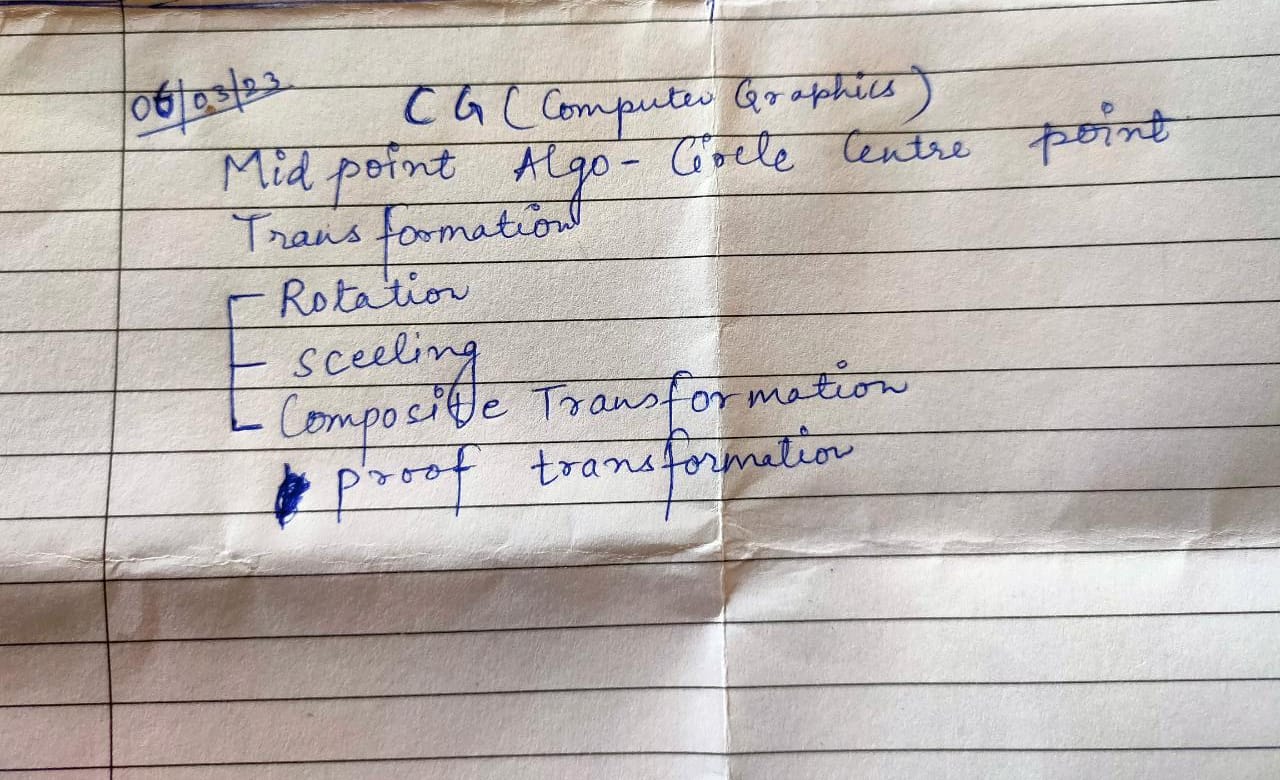 06/03/23
CG (Computer Graphics)
Mid point Algo - Circle Centre point
Transformation
Rotation
Sceeling
Composite Transformation
proof transformation